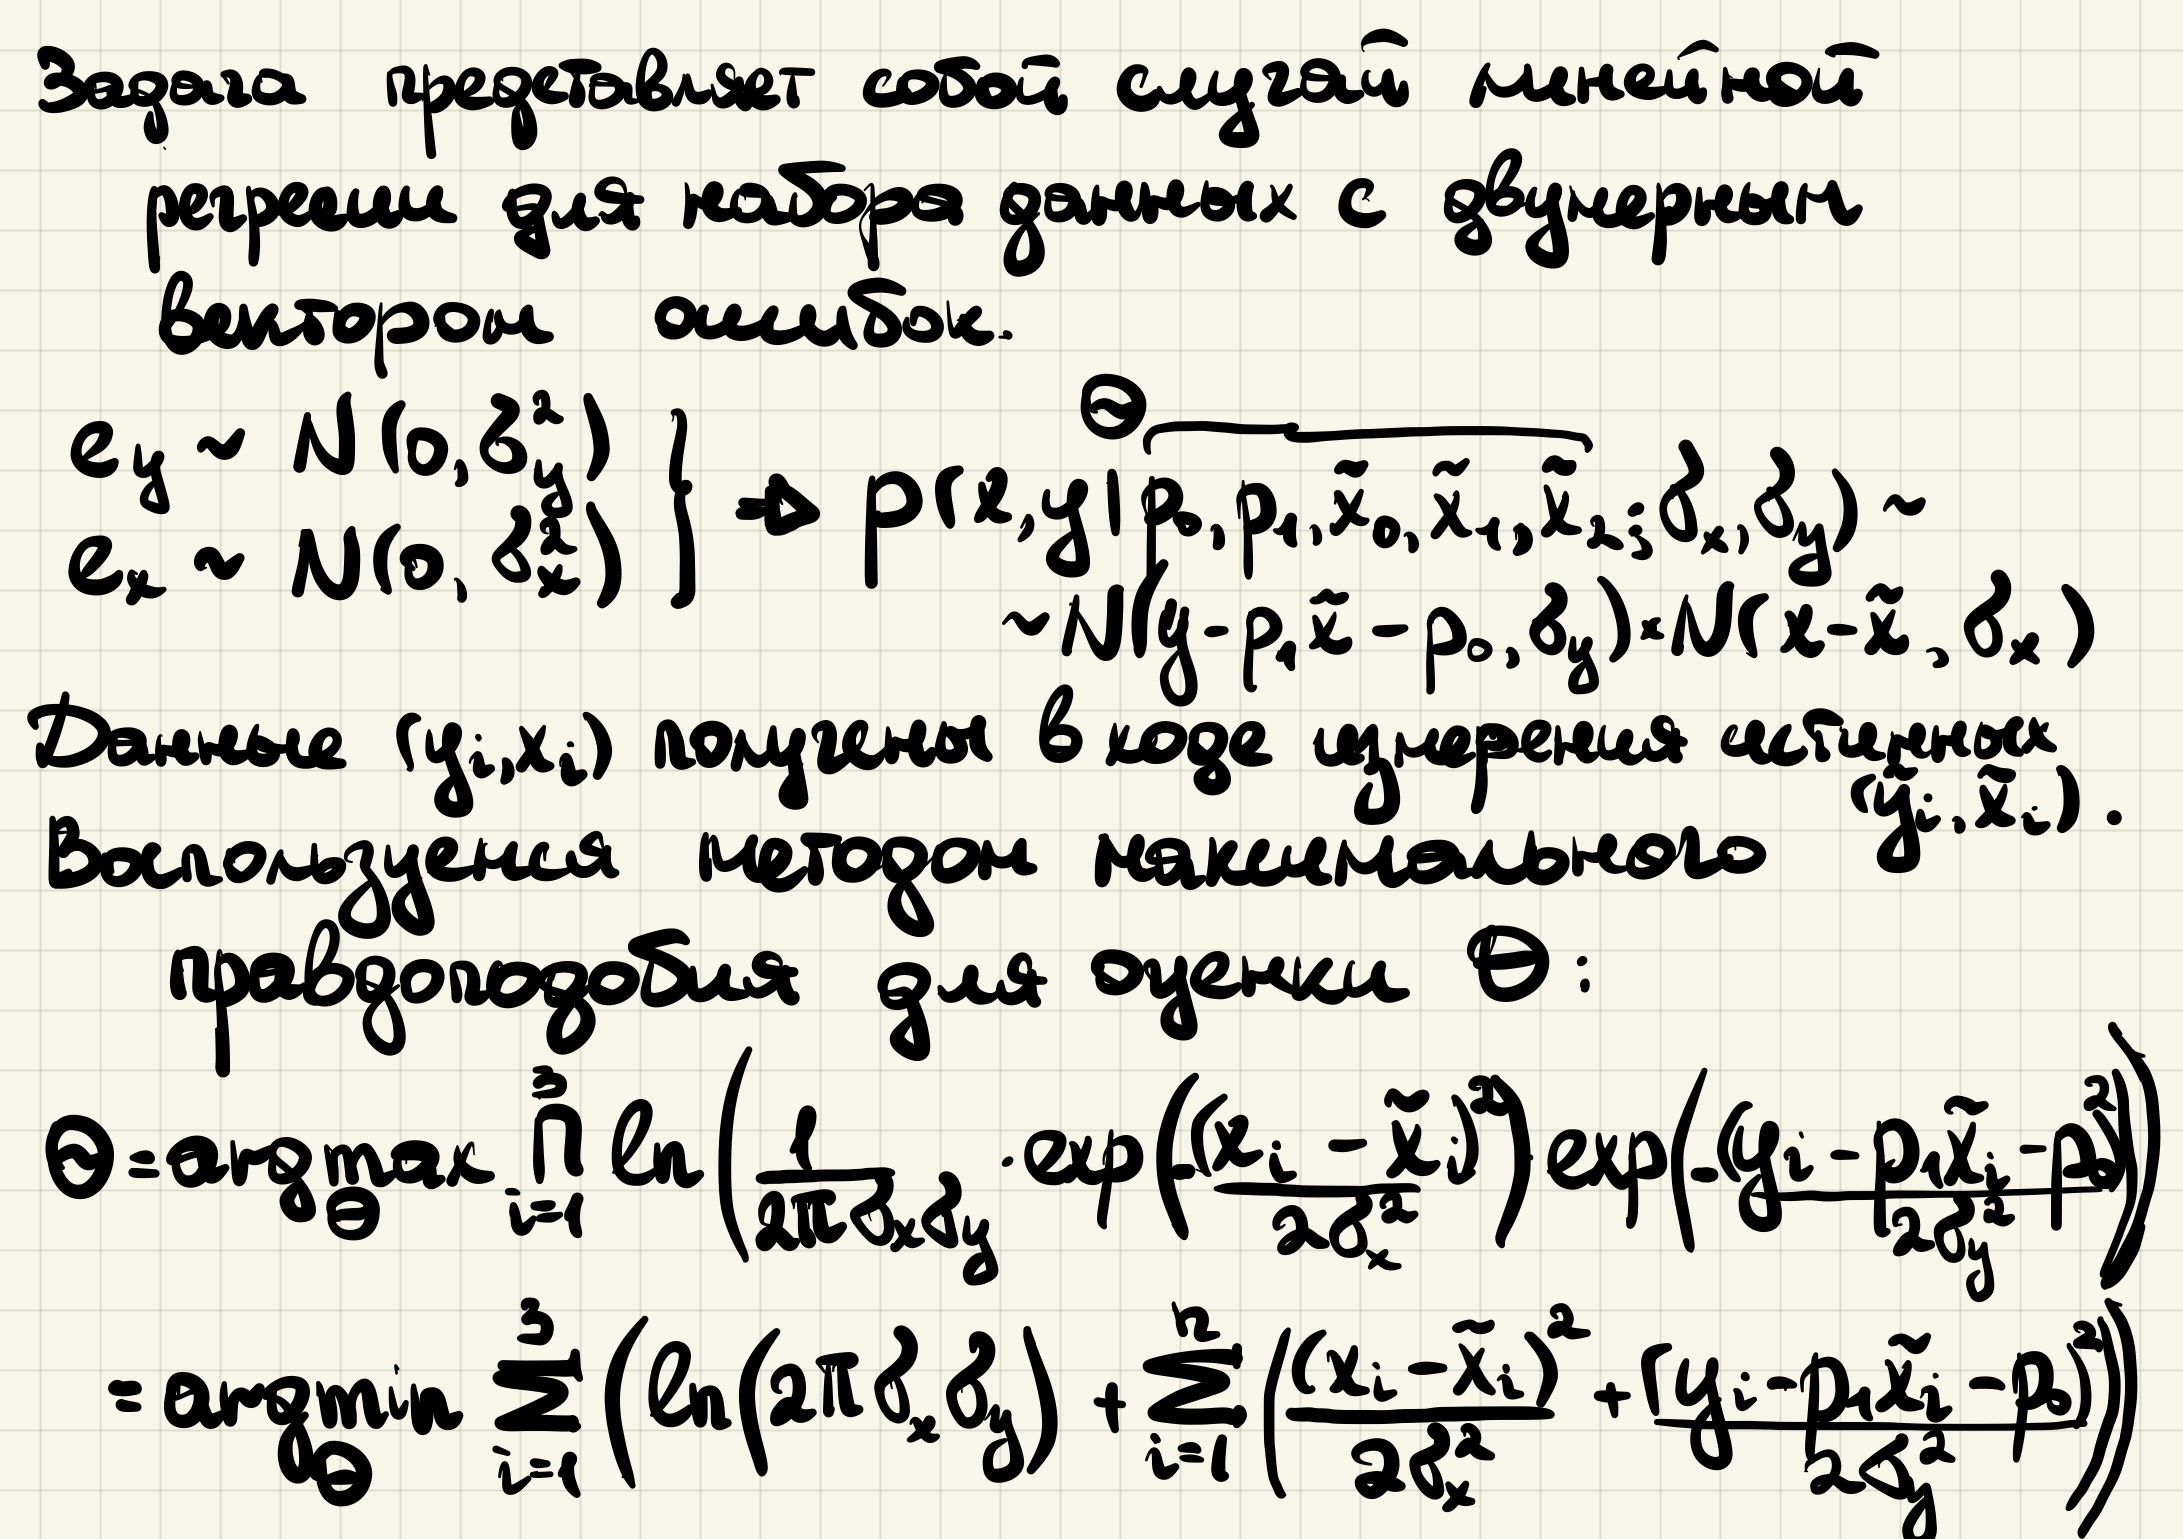 Задача представляет собой случай линейной
регрессии для набора данных с двумерным
вектором ошибок.
e_y ~ N(0, δ_y^2)
e_x ~ N(0, δ_x^2)
} ⇒ p(x, y | p_0, p_1, x̃_0, x̃_1, x̃_2; δ_x, δ_y) ~
Θ
~ N(y - p_1 x̃ - p_0, δ_y) × N(x - x̃, δ_x)
Данные (y_i, x_i) получены в ходе измерения истинных
(ỹ_i, x̃_i).
Воспользуемся методом максимального
правдоподобия для оценки Θ:
Θ = argmax_Θ ∏_{i=1}^{3} ln(1/(2π δ_x δ_y) · exp(-(x_i - x̃_i)^2/(2δ_x^2)) exp(-(y_i - p_1 x̃_i - p_0)^2/(2δ_y^2)))
= argmin_Θ ∑_{i=1}^{3} (ln(2π δ_x δ_y) + ∑_{i=1}^{n} ((x_i - x̃_i)^2/(2δ_x^2) + (y_i - p_1 x̃_i - p_0)^2/(2δ_y^2)))